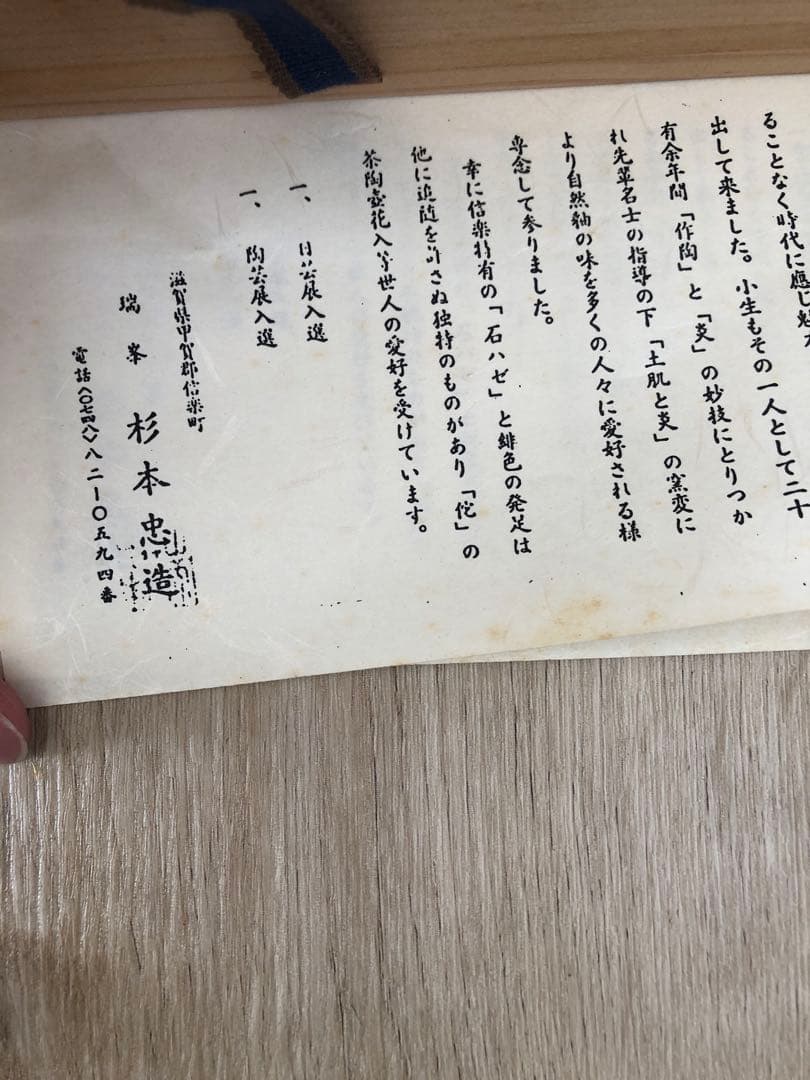 ることなく時代に應じ
出して来ました。小生もその一人として二十
有余年間「作陶」と「炎」の妙技にとりつか
れ先輩名士の指導の下「土肌と炎」の窯変に
より自然釉の味を多くの人々に愛好される様
専念して参りました。
幸に信楽特有の「石ハゼ」と緋色の発足は
他に追随を許さぬ独特のものがあり「侘」の
茶陶壺花入等世人の愛好を受けています。
一、日芸展入選
一、陶芸展入選
滋賀県甲賀郡信楽町
瑞峯 杉本忠造
電話〈〇七四八〉八二ー〇五九四番